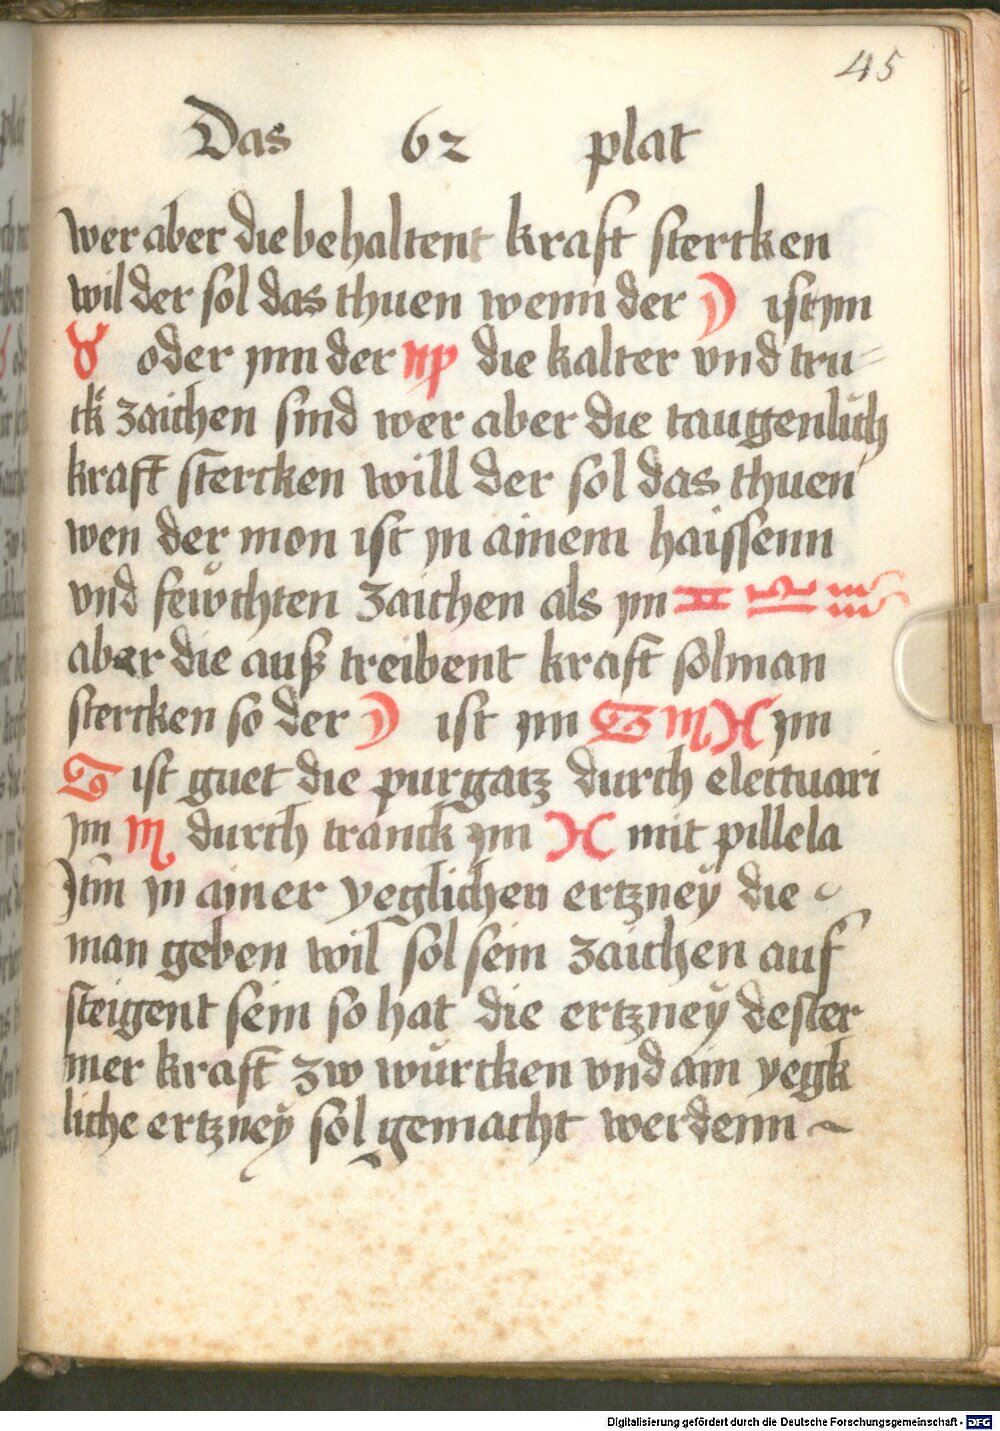 45
Das 62 plat
wer aber die behaltent kraft stercken
wil der sol das thuen wenn der ☽ ist ym
♉ oder ym der ♍ die kalter vnd tru=
ck zaichen sind wer aber die taugenlich
kraft stercken will der sol das thuen
wen der mon ist yn ainem haissenn
vnd feẘchten zaichen als ym ♊ ♎ ♒
aber die auß treibent kraft sol man
stercken so der ☽ ist ym ♋ ♏ ♓ ym
♋ ist guet die purgatz durch electuari
ym ♏ durch tranck ym ♓ mit pillela
Itm̄ yn ainer yeglichen ertzney die
man geben wil sol sein zaichen auf
steigent sein so hat die ertzneÿ dester
mer kraft zw wůrcken vnd ain yegk
liche ertzneÿ sol gemacht werdenn ~
Digitalisierung gefördert durch die Deutsche Forschungsgemeinschaft - DFG